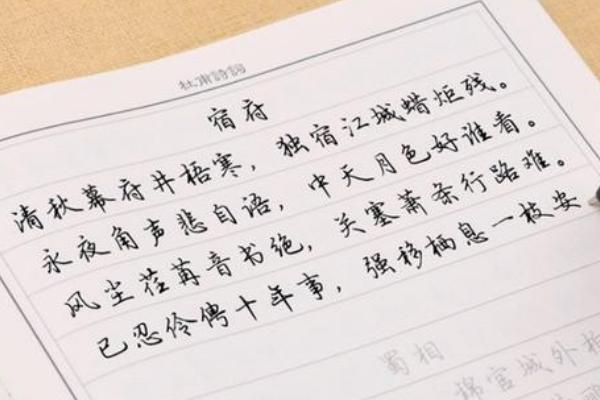 杜甫詩詞
宿府
清秋幕府井梧寒，独宿江城蜡炬残。
永夜角声悲自语，中天月色好谁看。
风尘荏苒音书绝，关塞萧条行路难。
已忍伶俜十年事，强移栖息一枝安
蜀相
锦官城外柏